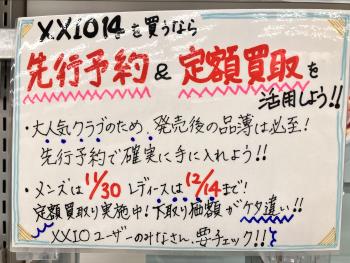 XXIO14を買うなら
先行予約&定額買取を
活用しよう!!
・大人気クラブのため、発売後の品薄は必至!
先行予約で確実に手に入れよう!!
・メンズは11/30 レディースは12/14まで!
定額買取り実施中!下取り価額がケタ違い!!
XXIOユーザーのみなさん、要チェック!!!